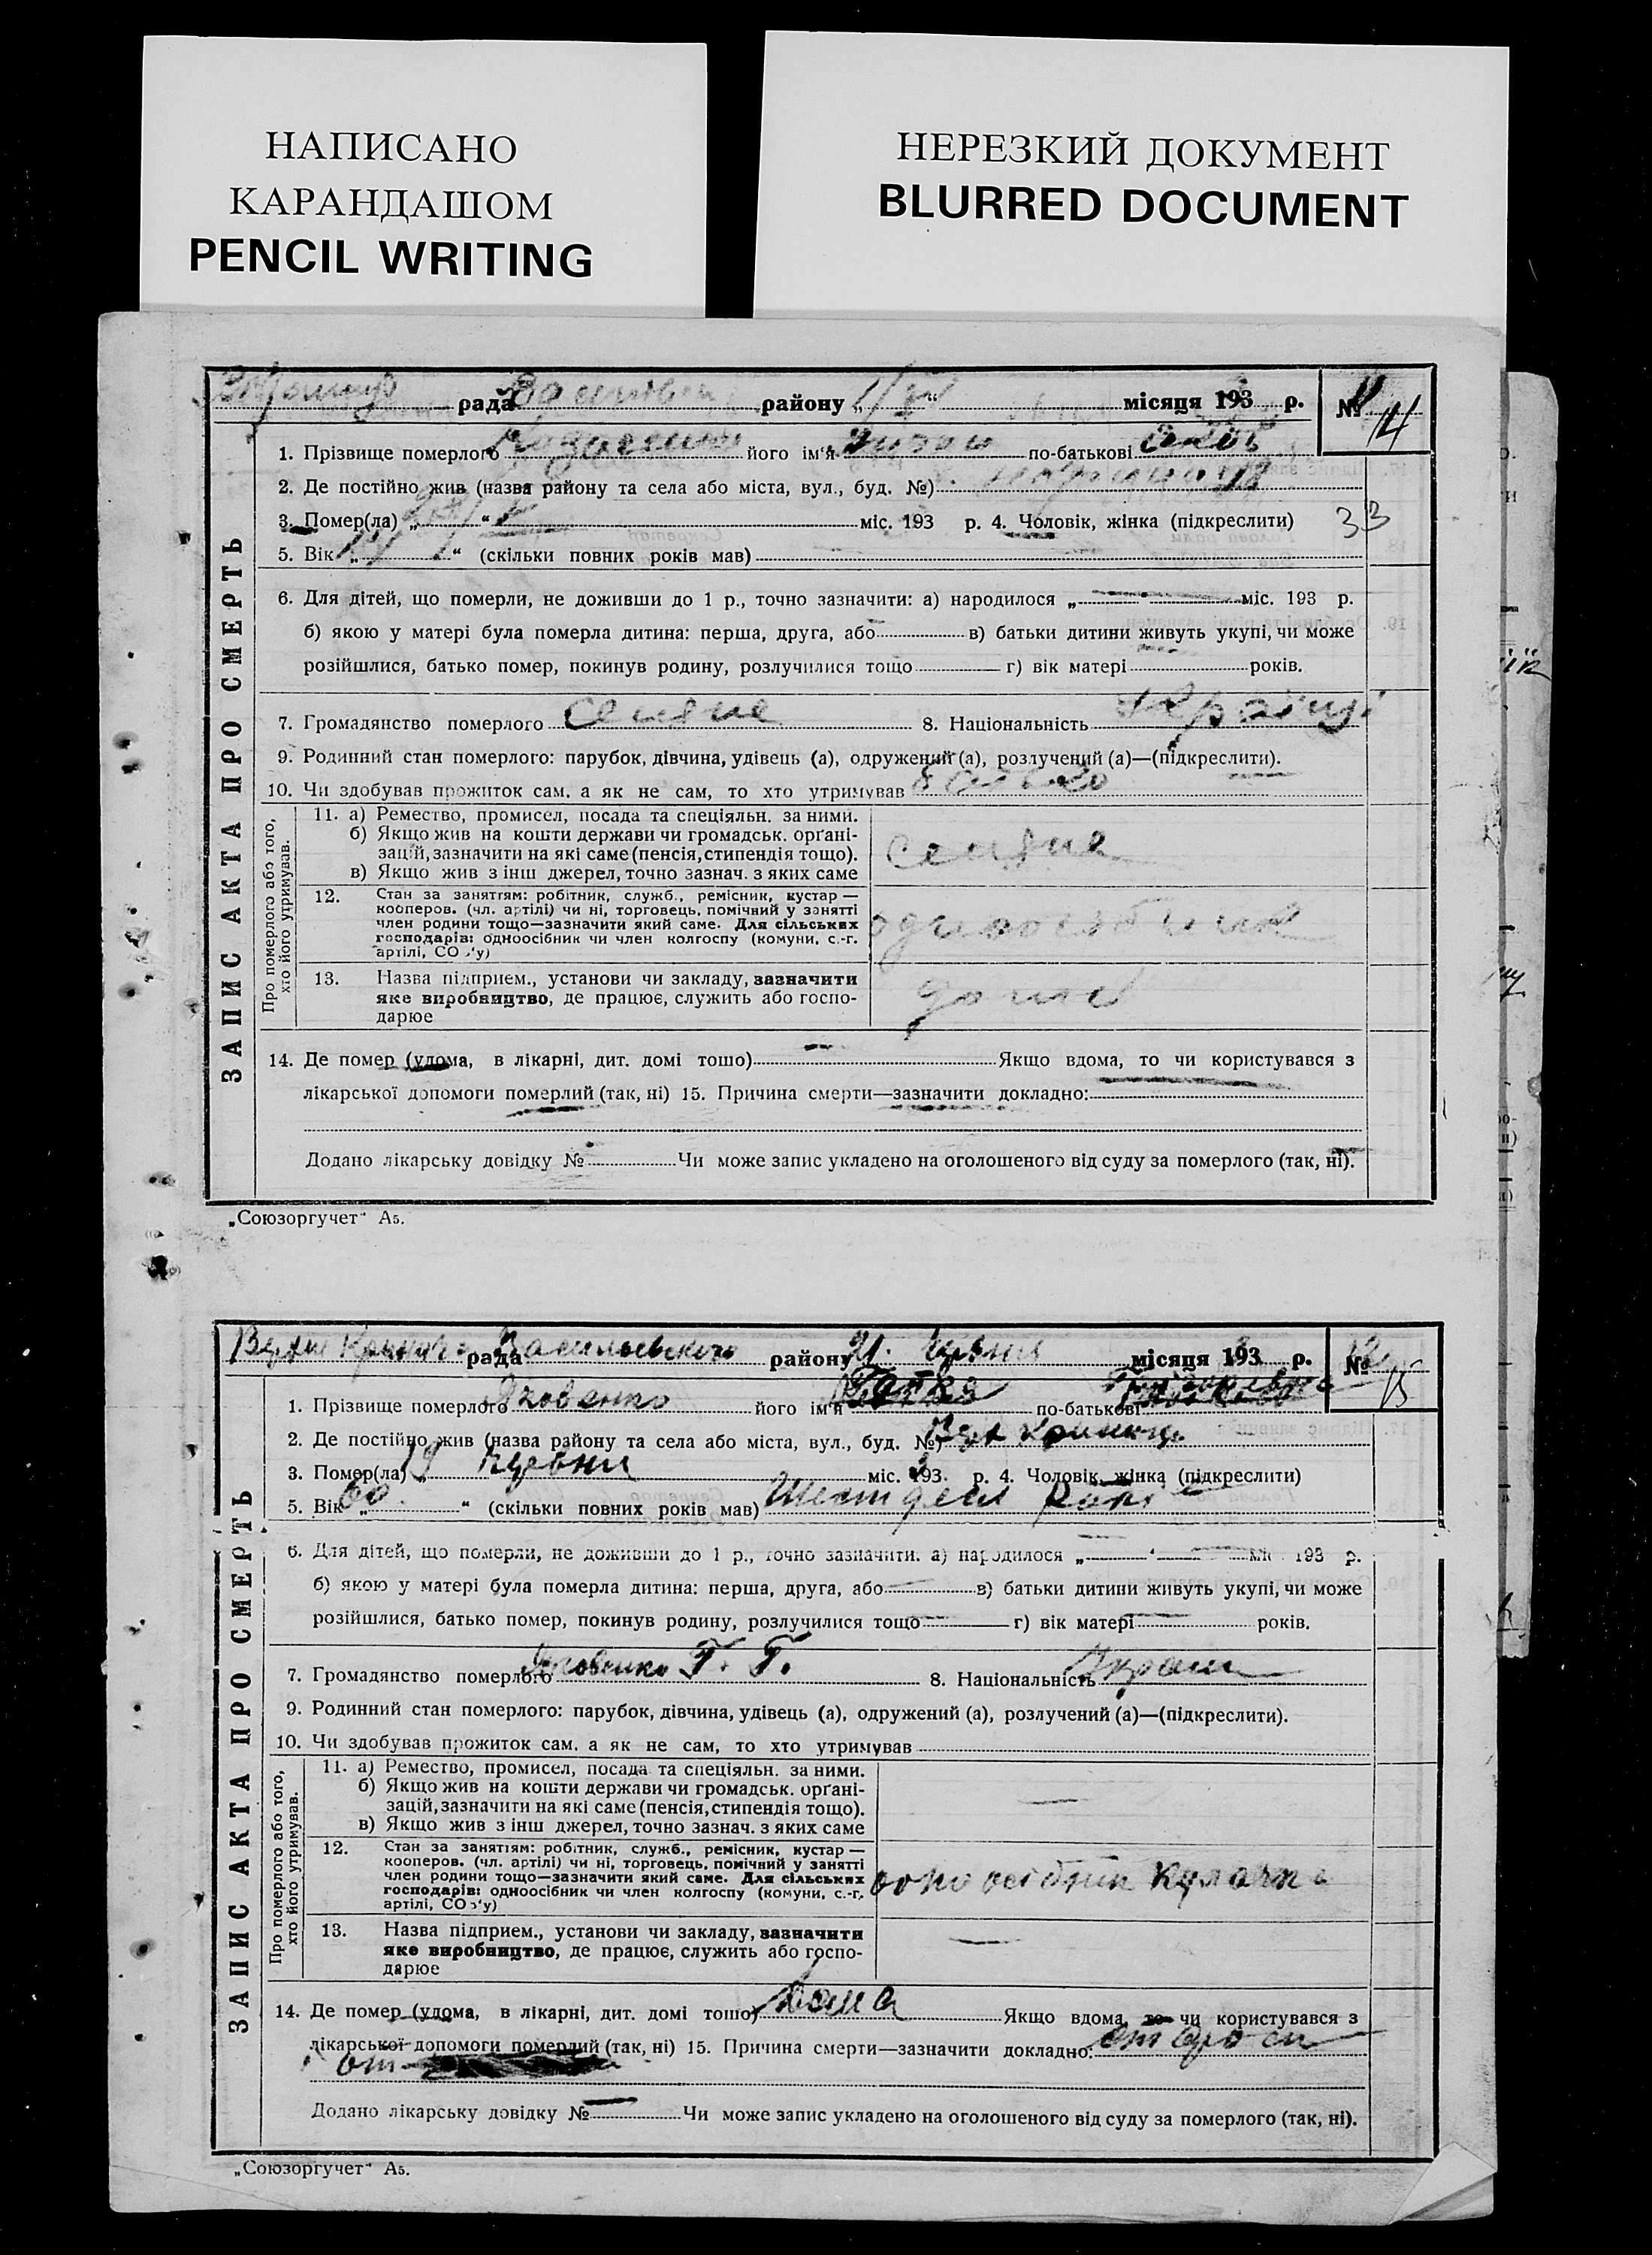 НАПИСАНО
КАРАНДАШОМ
PENCIL WRITING
НЕРЕЗКИЙ ДОКУМЕНТ
BLURRED DOCUMENT
ЗАПИС АКТА ПРО СМЕРТЬ
рада району місяця 193 р. №
14
1. Прізвище померлого його ім'я по-батькові
2. Де постійно жив (назва району та села або міста, вул., буд. №)
3. Помер(ла) „ “ міс. 193 р. 4. Чоловік, жінка (підкреслити) 33
5. Вік „ “ (скільки повних років мав)
6. Для дітей, що померли, не доживши до 1 р., точно зазначити: а) народилося „ “ міс. 193 р.
б) якою у матері була померла дитина: перша, друга, або в) батьки дитини живуть укупі, чи може
розійшлися, батько помер, покинув родину, розлучилися тощо г) вік матері років.
7. Громадянство померлого селяне 8. Національність
9. Родинний стан померлого: парубок, дівчина, удівець (а), одружений (а), розлучений (а)—(підкреслити).
10. Чи здобував прожиток сам, а як не сам, то хто утримував
Про померлого або того, хто його утримував.
11. а) Ремество, промисел, посада та спеціяльн. за ними.
б) Якщо жив на кошти держави чи громадськ. орґані-
зацій, зазначити на які саме (пенсія, стипендія тощо).
в) Якщо жив з інш джерел, точно зазнач. з яких саме
селяне
12. Стан за заняттям: робітник, служб., ремісник, кустар —
кооперов. (чл. артілі) чи ні, торговець, помічний у занятті
член родини тощо—зазначити який саме. Для сільських
господарів: одноосібник чи член колгоспу (комуни, с.-г.
артілі, СОз'у)
одноосібник
13. Назва підприєм., установи чи закладу, зазначити
яке виробництво, де працює, служить або госпо-
дарює
дома
14. Де помер (удома, в лікарні, дит. домі тощо) Якщо вдома, то чи користувався з
лікарської допомоги померлий (так, ні) 15. Причина смерти—зазначити докладно:
Додано лікарську довідку № Чи може запис укладено на оголошеного від суду за померлого (так, ні).
„Союзоргучет“ А5.
ЗАПИС АКТА ПРО СМЕРТЬ
рада Васильевского району 21. червня місяця 193 3 р. №
13
1. Прізвище померлого Яковенко його ім'я по-батькові Григоревна
2. Де постійно жив (назва району та села або міста, вул., буд. №) Верх Криниц
3. Помер(ла) „ 19 “ міс. 193 р. 4. Чоловік, жінка (підкреслити)
5. Вік „ 60 “ (скільки повних років мав) Шестдесят
6. Для дітей, що померли, не доживши до 1 р., точно зазначити: а) народилося „ “ міс. 193 р.
б) якою у матері була померла дитина: перша, друга, або в) батьки дитини живуть укупі, чи може
розійшлися, батько помер, покинув родину, розлучилися тощо г) вік матері років.
7. Громадянство померлого Яковенко Г. Г. 8. Національність
9. Родинний стан померлого: парубок, дівчина, удівець (а), одружений (а), розлучений (а)—(підкреслити).
10. Чи здобував прожиток сам, а як не сам, то хто утримував
Про померлого або того, хто його утримував.
11. а) Ремество, промисел, посада та спеціяльн. за ними.
б) Якщо жив на кошти держави чи громадськ. орґані-
зацій, зазначити на які саме (пенсія, стипендія тощо).
в) Якщо жив з інш джерел, точно зазнач. з яких саме
12. Стан за заняттям: робітник, служб., ремісник, кустар —
кооперов. (чл. артілі) чи ні, торговець, помічний у занятті
член родини тощо—зазначити який саме. Для сільських
господарів: одноосібник чи член колгоспу (комуни, с.-г.
артілі, СОз'у)
13. Назва підприєм., установи чи закладу, зазначити
яке виробництво, де працює, служить або госпо-
дарює
14. Де помер (удома, в лікарні, дит. домі тощо) Дома Якщо вдома, то чи користувався з
лікарської допомоги померлий (так, ні) 15. Причина смерти—зазначити докладно:
от
Додано лікарську довідку № Чи може запис укладено на оголошеного від суду за померлого (так, ні).
„Союзоргучет“ А5.